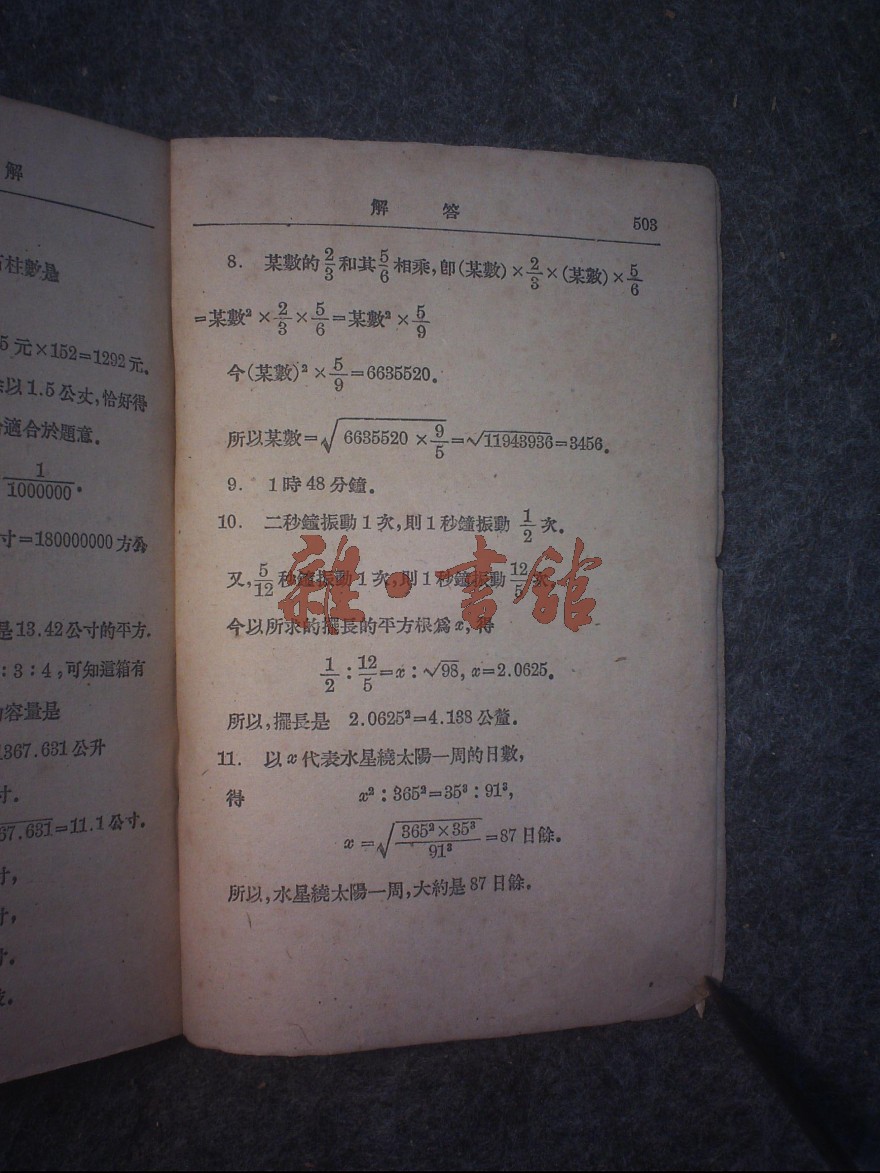 解
石柱數是
5元×152=1292元.
以1.5公丈,恰好得
適合於題意.
1/1000000.
寸=180000000方公
是13.42公寸的平方.
:3:4,可知道箱有
容量是
1367.631公升
寸.
67.631=11.1公寸.
寸,
寸,
寸.
解 答 503
8. 某數的2/3和其5/6相乘,卽(某數)×2/3×(某數)×5/6
=某數²×2/3×5/6=某數²×5/9
今(某數)²×5/9=6635520.
所以某數=√(6635520×9/5)=√11943936=3456.
9. 1時48分鐘.
10. 二秒鐘振動1次,則1秒鐘振動 1/2 次.
又,5/12秒鐘振動1次,則1秒鐘振動12/5次,
今以所求的擺長的平方根爲x,得
1/2:12/5=x:√98, x=2.0625.
所以,擺長是 2.0625²=4.138公釐.
11. 以x代表水星繞太陽一周的日數,
得 x²:365²=35³:91³,
x=√(365²×35³/91³)=87日餘.
所以,水星繞太陽一周,大約是87日餘.
雜·書館